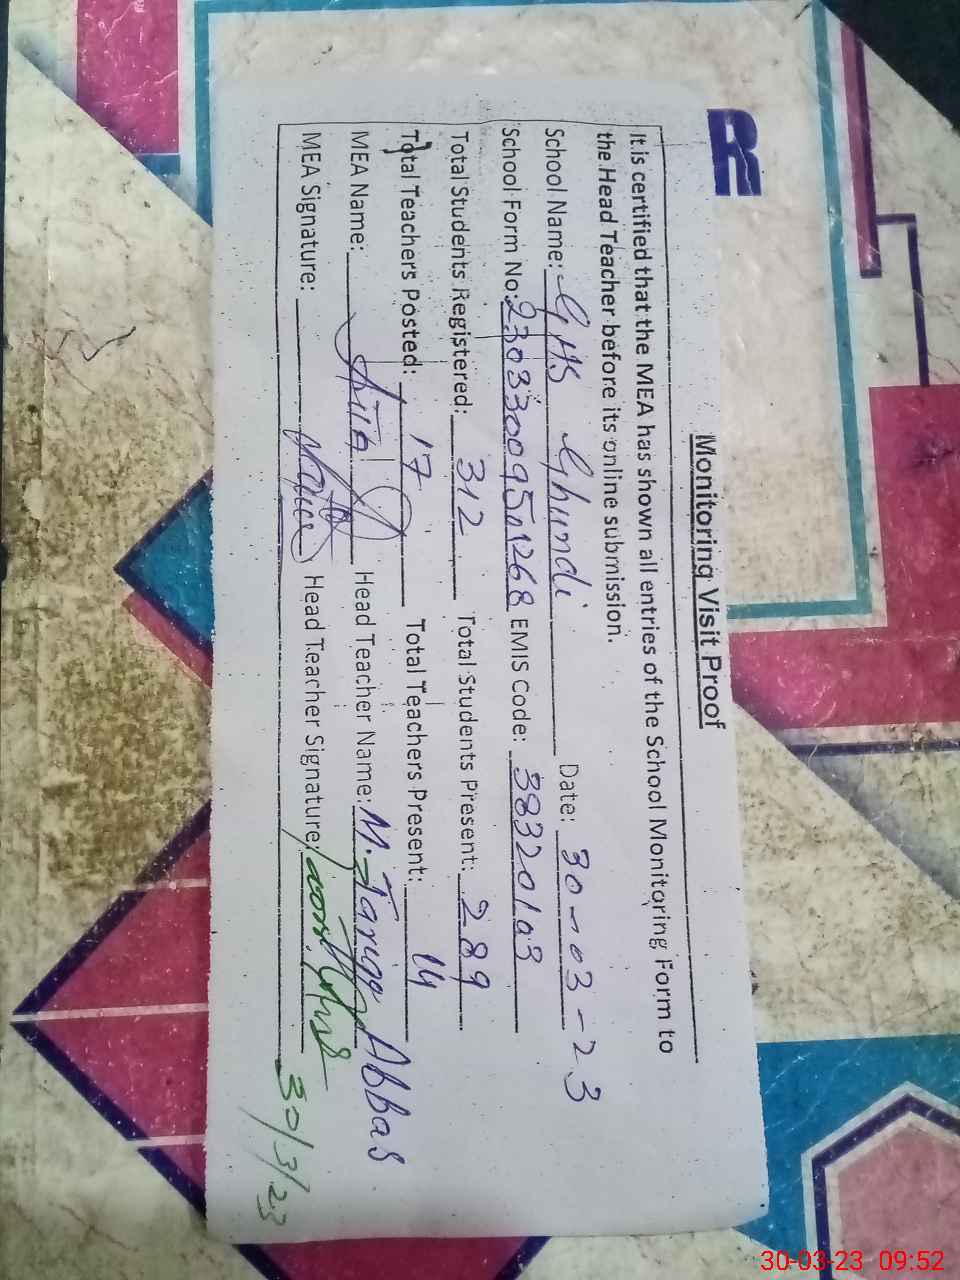 Monitoring Visit Proof
It is certified that the MEA has shown all entries of the School Monitoring Form to
the Head Teacher before its online submission.
School Name: GHS Ghundi Date: 30-03-23
School Form No: 23033009501268 EMIS Code: 38320103
Total Students Registered: 312 Total Students Present: 289
Total Teachers Posted: 17 Total Teachers Present: 14
MEA Name: Head Teacher Name: M. Tariq Abbas
MEA Signature: Head Teacher Signature:
30/3/23
30-03-23 09:52